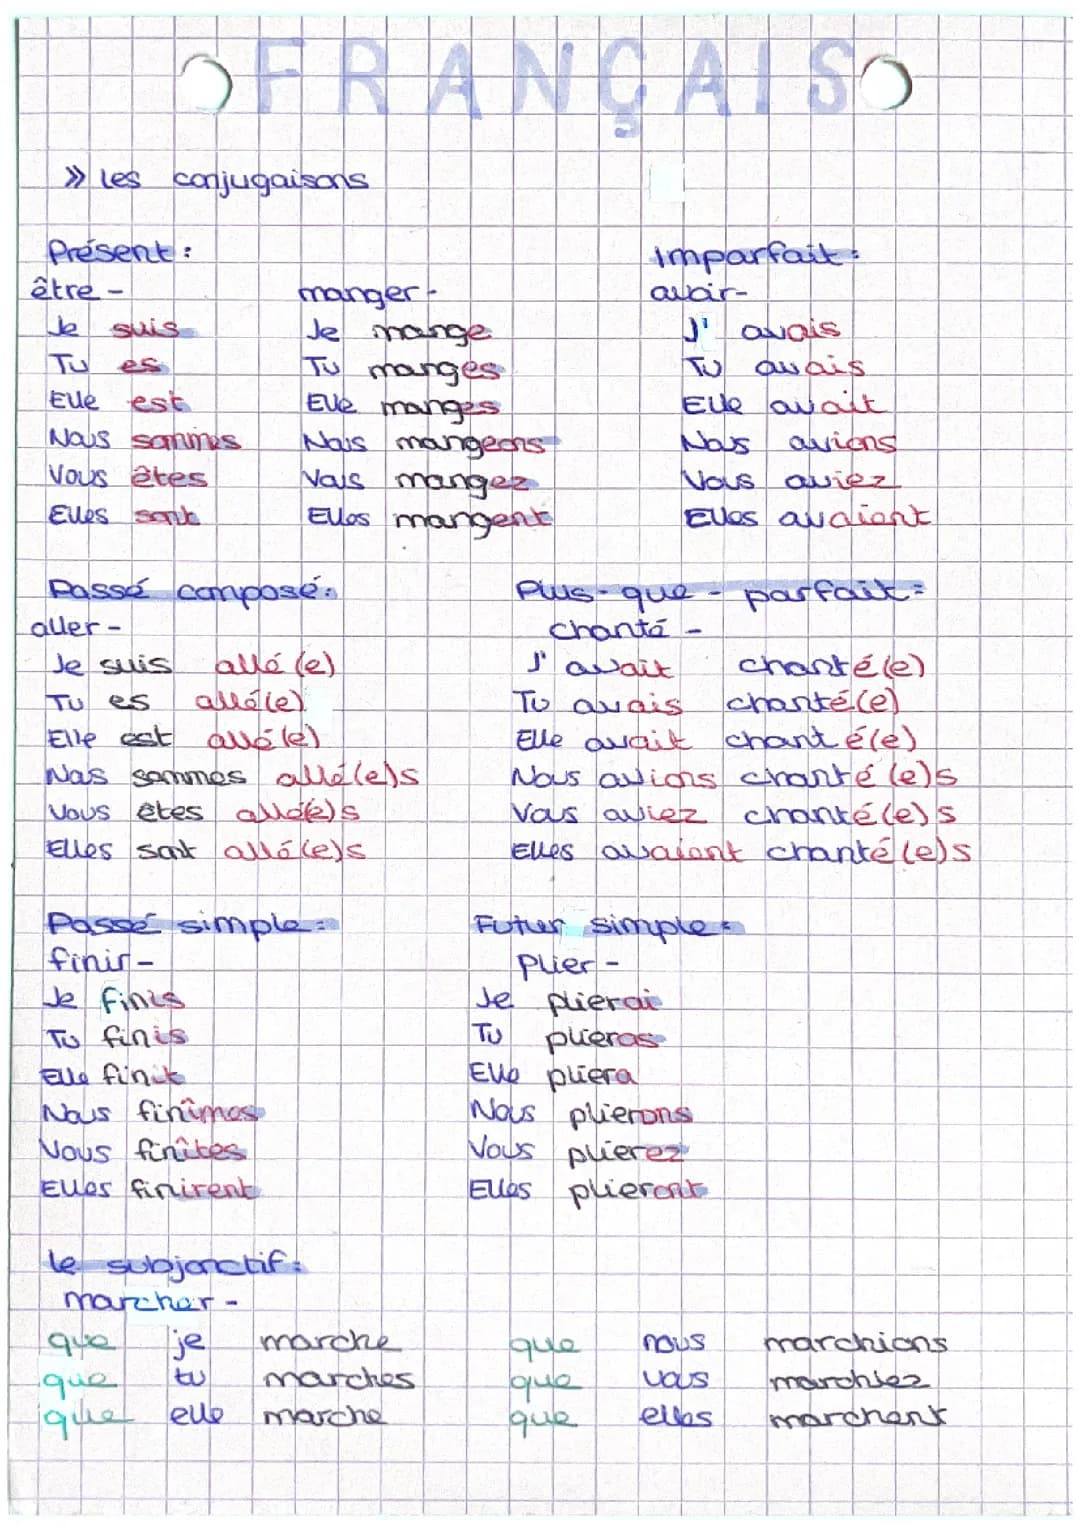 FRANÇAIS
» Les conjugaisons
Présent :
être -
Je suis
Tu es
Elle est
Nous sommes
Vous êtes
Elles sont
manger -
Je mange
Tu manges
Elle manges
Nous mangeons
Vous mangez
Elles mangent
Imparfait :
avoir -
J' avais
Tu avais
Elle avait
Nous avions
Vous aviez
Elles avaient
Passé composé :
aller -
Je suis allé(e)
Tu es allé(e)
Elle est allé(e)
Nous sommes allé(e)s
Vous êtes allé(e)s
Elles sont allé(e)s
Plus-que-parfait :
chanté -
J' avait chanté(e)
Tu avais chanté(e)
Elle avait chanté(e)
Nous avions chanté(e)s
Vous aviez chanté(e)s
Elles avaient chanté(e)s
Passé simple :
finir -
Je finis
Tu finis
Elle finit
Nous finîmes
Vous finîtes
Elles finirent
Futur simple :
plier -
Je plierai
Tu plieras
Elle pliera
Nous plierons
Vous plierez
Elles plieront
Le subjonctif :
marcher -
que je marche
que tu marches
que elle marche
que nous marchions
que vous marchiez
que elles marchent